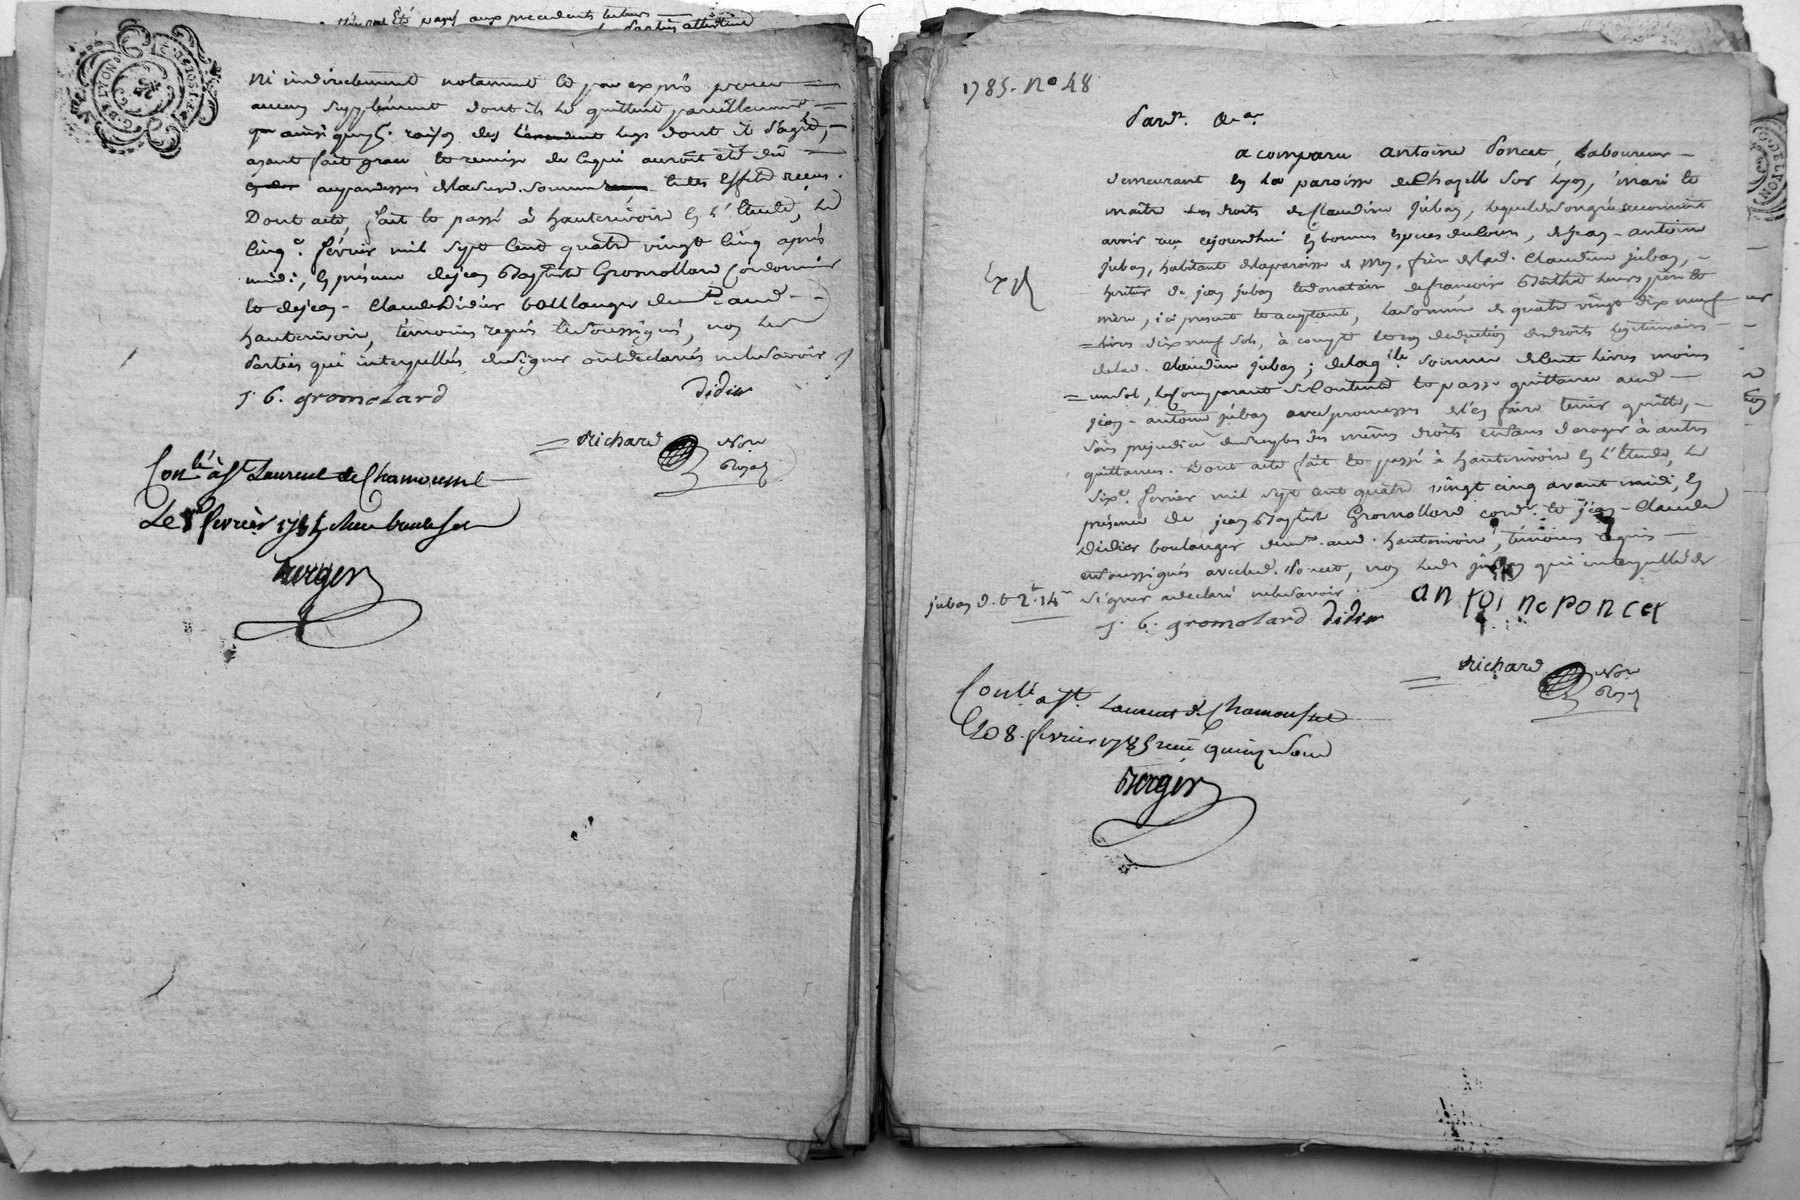 ni indirectement notamment et par exprès pour
aucun supplément dont ils le quittent pareillement
ainsi qu'en raison des legs dont il s'agit,
ayant fait grace et remise de ce qui auroit été dû
auxpardessus de la susd. somme et des effets reçus.
Dont acte, fait et passé à hauterivoire en l'étude, le
cinq.e février mil sept cent quatre vingt cinq après
midi, en présence de jean Baptiste Gromollard Cordonnier
et de jean-claude didier boullanger dem.t aud.
hauterivoire, témoins requis et soussignés, non les
parties qui interpellées de signer ont déclarés ne le savoir
j. b. gromolard didier
Richard No.re
Royal
Con.lé à S.t Laurent de Chamousset
Le 8 fevrier 1785
Berger
1785. N° 48
Pard.t &.a
a comparu antoine Poncet, Laboureur
demeurant en la paroisse de Chazelle sur Lyon, mari et
maître des droits de Claudine juban, lequel de son gré reconnoit
avoir reçu cejourd'hui en bonnes espèces du cours, de jean-antoine
juban, habitant de la paroisse de, frère de lad. Claudine juban,
héritier de jean juban et donataire de françoise leurs père et
mère, ici présent et acceptant, la somme de quatre vingt dix neuf
livres dix neuf sols, à compte et en déduction des droits légitimaires
de lad. Claudine juban; de laq.lle somme de cent livres moins
un sol, le comparant se contente et passe quittance aud.
jean-antoine juban avec promesse de l'en faire tenir quitte,
sans préjudice du reste des mêmes droits et sans déroger à autres
quittances. Dont acte fait et passé à hauterivoire en l'étude, le
six.e février mil sept cent quatre vingt cinq avant midi, en
présence de jean Baptiste Gromollard cord.r et jean-Claude
Didier boulanger dem.t aud. hauterivoire, témoins requis
et soussignés avec led. Poncet, non led. juban qui interpellé de
signer a déclaré ne le savoir
j. b. gromolard didier antoine poncet
Richard No.re
Royal
Con.lé à S.t Laurent de Chamousset
Le 8. fevrier 1785 reçu quinze sous
Berger